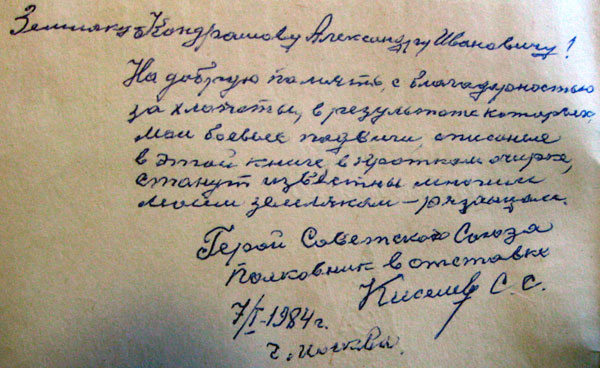 Земляку Кондрашову Александру Ивановичу!
На добрую память, с благодарностью
за хлопоты, в результате которых,
мои боевые подвиги, описаные
в этой книге, в кратком очерке,
станут известны многим
моим землякам – рязанцам.
Герой Советского Союза
Полковник в отставке
Киселев С. С.
7/I-1984 г.
г. Москва.